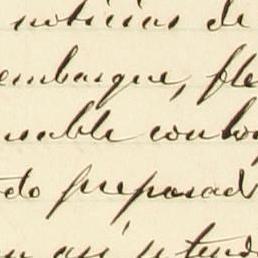 noticias de
embarque, fle
nable con
do preparad
así y tend